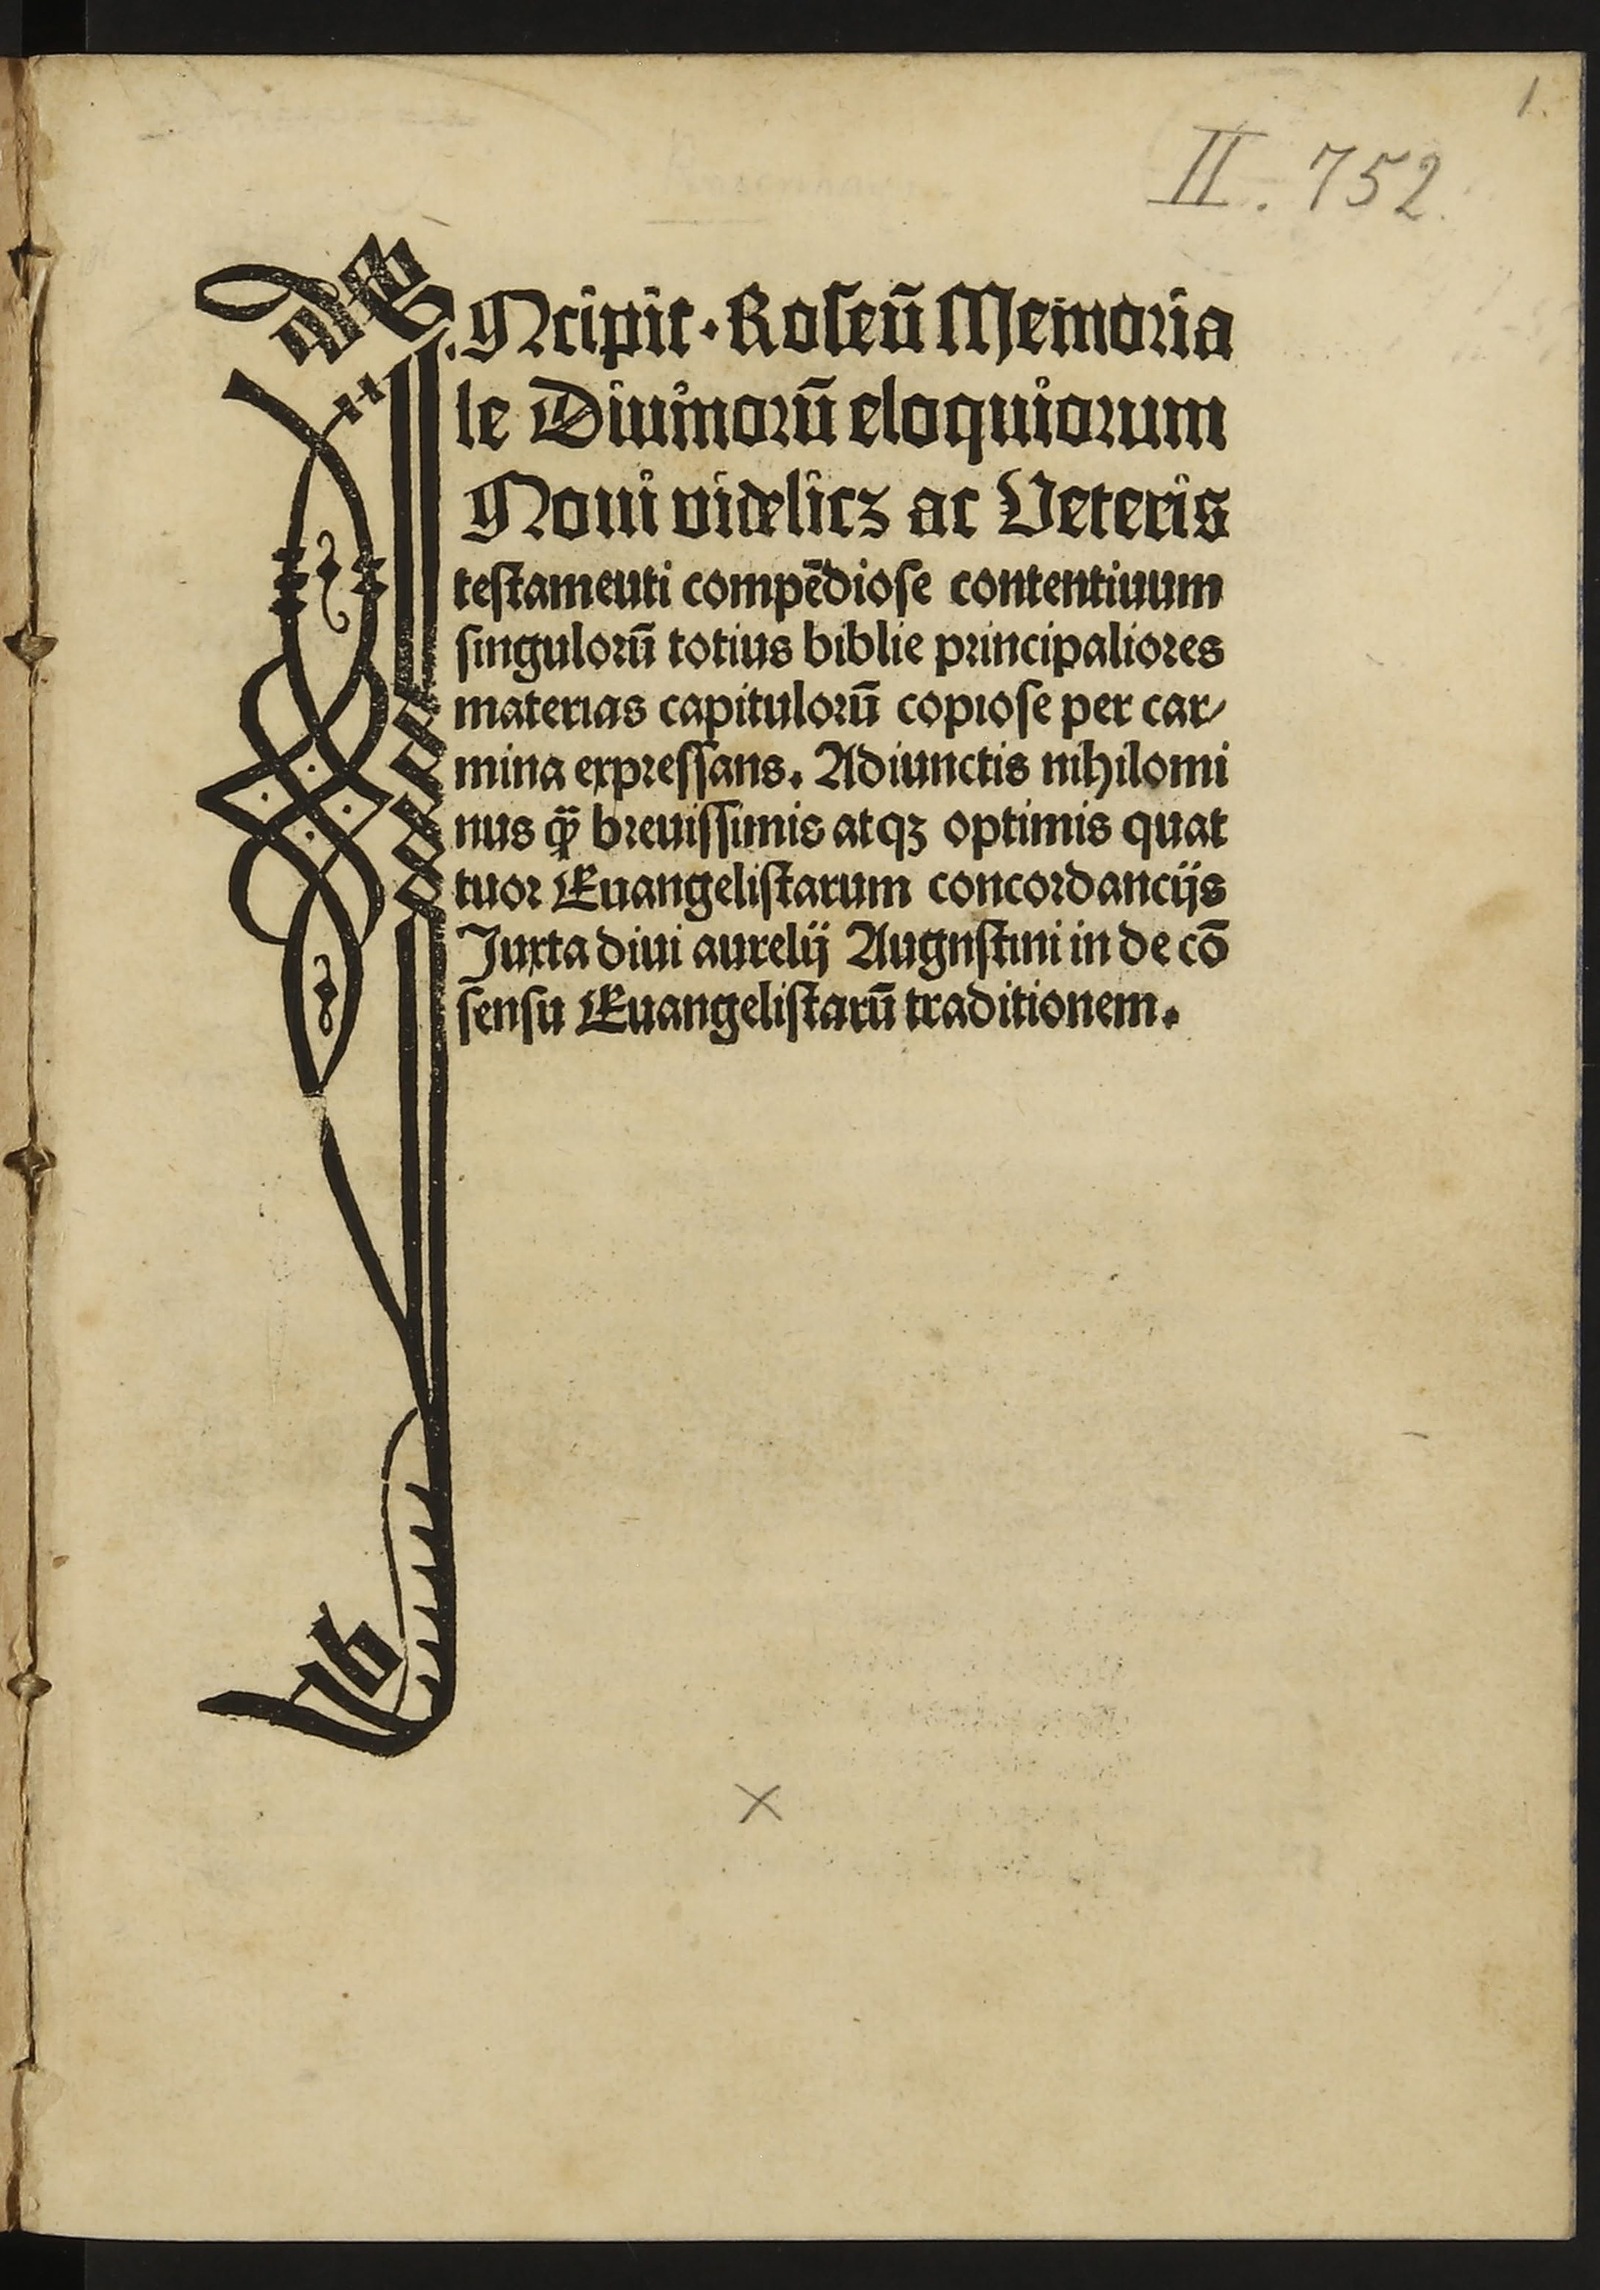 1.
II. 752.
INcipit. Roseū Memoria
le Diuinorū eloquiorum
Noui videlicꝫ ac Veteris
testameuti compēdiose contentiuum
singulorū totius biblie principaliores
materias capitulorū copiose per car⸗
mina expressans. Adiunctis nihilomi
nus qꝫ̈ breuissimis atqꝫ optimis quat
tuor Euangelistarum concordancijs
Juxta diui aurelij Augnstini in de cō
sensu Euangelistarū traditionem.
x